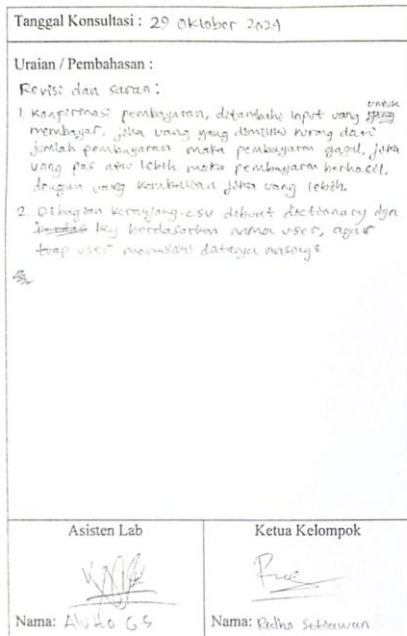 Tanggal Konsultasi : 29 Oktober 2024
Uraian / Pembahasan :
Revisi dan saran :
untuk
1. Konfirmasi pembayaran, ditambahi input uang yang
membayar, jika uang yang dimiliki kurang dari
jumlah pembayaran maka pembayaran gagal, jika
uang pas atau lebih maka pembayaran berhasil,
dengan uang kembalian jika uang lebih.
2. Dibagian keranjang.csv dibuat dictionary dgn
key berdasarkan nama user, agar
tiap user memiliki datanya masing²
Asisten Lab
Ketua Kelompok
Nama: G.S
Nama: Redho Setiawan